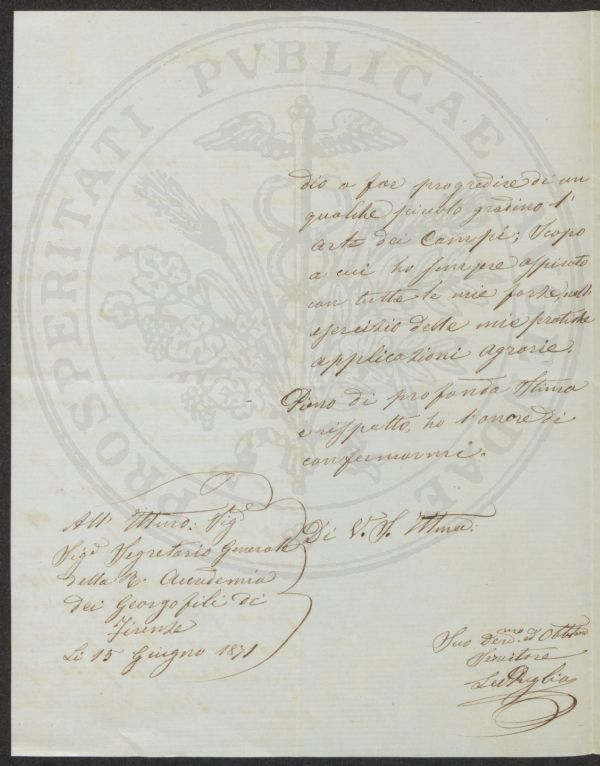 PROSPERITATI PVBLICAE
dio a far progredire di un
qualche piccolo gradino l'
arte dei Campi; Scopo
a cui ho sempre aspirato
con tutte le mie forze, nell
esercizio delle mie pratiche
applicazioni agrarie.
Pieno di profonda stima
e rispetto, ho l'onore di
confermarmi.
Di V. S. Illma:
All' Illmo: Sigr
Sigr Segretario Generale
della R. Accademia
dei Georgofili di
Firenze
Li 15 Giugno 1871
Suo Devmo ed Obbmo
Servitore